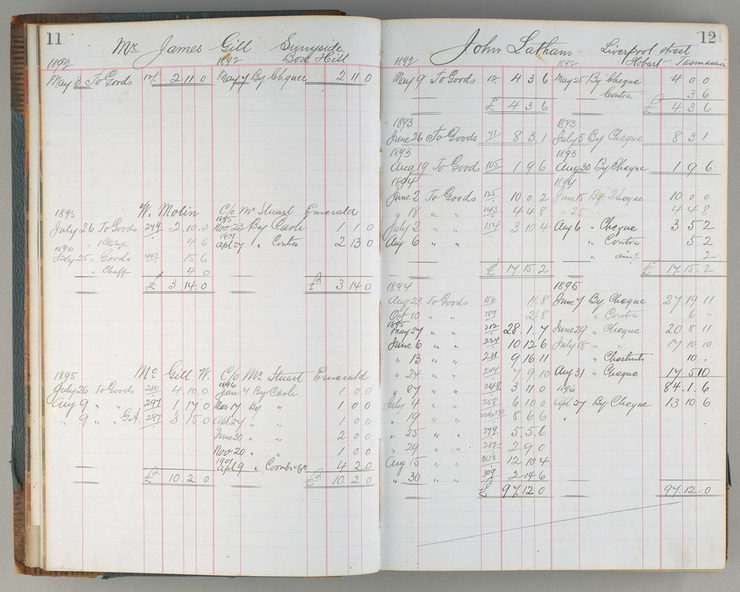 11
Mr James Gill Sunyside
Box Hill
1892 1892
May 3 To Goods 2 11 0 May 7 By Cheque 2 11 0
1895 W. Molin C/o Mr Stuart Emerald
1895
July 26 To Goods 249 2 10 0 Nov 23 By Cash 1 1 0
1896 4 6 1897 Apl 27 " Contra 2 13 0
July 25 " Goods 15 6
" Chaff 4 0
£ 3 14 0 £ 3 14 0
1895 Mc Gill W. C/o Mr Stuart Emerald
1896
July 26 To Goods 250 4 10 0 Jan 4 By Cash 1 0 0
Aug 9 " " 297 1 17 0 Mar 17 By " 1 0 0
" 9 " " 297 3 15 0 Apl 24 " 1 0 0
June 30 " " 2 0 0
Nov 20 " 1 0 0
1897
Apl 9 " 4 2 0
£ 10 2 0 £ 10 2 0
12
John Latham Liverpool street
Hobart Tasmania
1892 1892
May 9 To Goods 12 4 3 6 May 25 By Cheque 4 0 0
Contra 3 6
£ 4 3 6 £ 4 3 6
1893 1893
June 26 To Goods 71 8 3 1 July 5 By Cheque 8 3 1
1893 1893
Aug 19 To Goods 105 1 9 6 Aug 30 By Cheque 1 9 6
1894 1894
June 2 To Goods 135 10 0 2 June 15 By Cheque 10 0 0
" 18 " " 143 4 4 8 " 25 " 4 4 8
July 2 " " 154 3 10 4 Aug 6 " Cheque 3 5 2
Aug 6 " " " Contra 5 2
" " 2
£ 17 15 2 £ 17 15 2
1894 1896
Aug 23 To Goods 186 11 8 June 7 By Cheque 27 19 11
Oct 10 " " 189 2 8 " Contra 6 "
1895
May 27 " " 212 28 1 7 June 29 " Cheque 20 8 11
June 6 " " 224 10 12 6 July 18 " " 17 10 10
" 13 " " 231 9 16 11 " 10 "
" 24 " " 244 7 9 10 Aug 31 " Cheque 17 5 10
" 27 " " 248 3 11 0 1896 84 1 6
July 4 " " 258 6 10 0 Apl 27 By Cheque 13 10 6
" 19 " " 8 6 6 "
" 25 " " 279 5 5 6
" 29 " " 282 2 9 0
Aug 15 " " 303 12 10 4
" 30 " " 309 2 14 6
£ 97 12 0 97 12 0